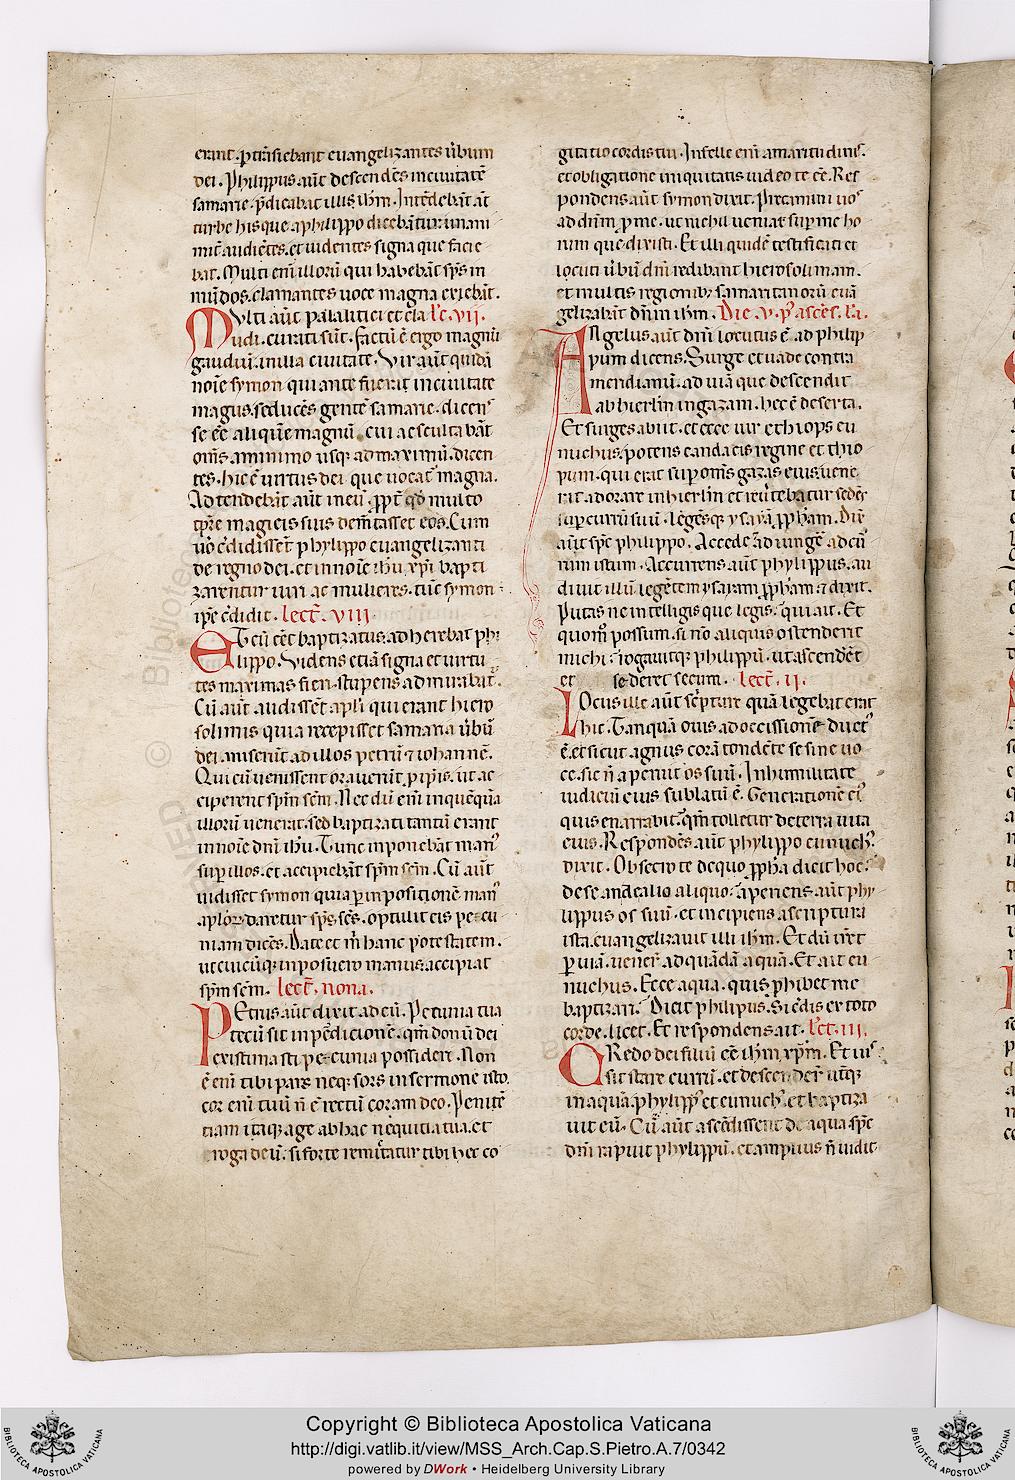 erant. ptrāsiebant euangelizantes ūbum
dei. Philippus aūt descendēs inciuitatē
samarie. p̄dicabat illis xp̄m. Intēdebāt aūt
turbe hisque aphilippo dicebāntur. unani
mit̄ audiētes. et uidentes signa que facie
bat. Multi enī illorū qui habebāt sp̄s in
mūdos. clamantes uoce magna exiebāt.
Multi aūt paralitici et cla lc̄. vii.
udi. curati sūt. factū ē ergo magnū
gaudiū. inilla ciuitate. Vir aūt quidā
noīe symon qui ante fuerit inciuitate
magus. seducēs gentē samarie. dicens
se eē aliquēm magnū. cui ascultabāt
om̄s a minimo usq; ad maximū. dicen
tes. hic ē uirtus dei que uocat̄ magna.
Adtendebāt aūt ineū. ꝓpt̄ qđ multo
tp̄re magicis suis demtasset eos. Cum
ūo c̄didisset̄ phylippo euangelizanti
de regno dei. et innoīe ihū xp̄i bapti
zarentur uiri ac mulieres. tūc symon
ip̄e c̄didit. lect̄. viii.
Et cū eēt baptizatus. adherebat phi
lippo. Videns etiā signa et uirtu
tes maximas fieri. stupens admirabat̄.
Cū aūt audissēt apl̄i qui erant hiero
solimis quia recepisset samaria ūbū
dei. miserūt ad illos petrū & iohannē.
Qui cū uenissent orauerūt ꝓ ip̄is. ut ac
ciperent sp̄m sc̄m. Nec dū enī inquēq̄ā
illorū uenerat. sed baptizati tantū erant
innoīe dn̄i ihū. Tunc inponebāt man᷒
sup illos. et accipiebāt sp̄m sc̄m. Cū aūt
uidisset symon quia p inpositionē man᷒
aplōꝝ daretur sp̄s sc̄s. optulit eis pecu
niam dicēs. Date et m̄ hanc potestatem.
ut cuicūq; inposuero manus. accipiat
sp̄m sc̄m. lect̄. nona.
Petrus aūt dixit ad eū. Pecunia tua
tecū sit inp̄dicionē. qm̄ donū dei
existimasti pecunia possidere. Non
ē enī tibi pars neq; sors insermone isto.
cor enī tuū n̄ ē rectū coram deo. Penitē
tiam itaq; age abhac neq̄uitia tua. et
roga deū. si forte remittatur tibi hec co
gitatio cordis tui. Infelle enī amaritudinis.
et obligatione iniquitatis uideo te eē. Res
pondens aūt symon dixit. Precamini uos
ad dn̄m ꝓ me. ut nichil ueniat sup me ho
rum que dixisti. Et illi quidē testificati et
locuti ūbū dn̄i redibant hierosolimam.
et multis regionib; samaritanorū euā
gelizabāt dn̄m ihm. Die. v. p᷒ ascēs. l'. i.
Angelus aūt dn̄i locutus ē. ad philip
pum dicens. Surge et uade contra
meridianū. ad uiā que descendit
ab hierl̄m ingazam. hec ē deserta.
Et surges abiit. et ecce uir ethiops eu
nuchus. potens candacis regine ethio
pum. qui erat sup om̄s gazas eius. uene
rat adorare inhierl̄m et reūtebatur sedēs
sup currū suū. legēsq; ysayā ꝓph̄am. Dix̄
aūt sp̄c philippo. Accede & adiunge̅ adcū
rum istum. Accurrens aūt phylippus. au
diuit illū legētem ysayam ꝓph̄am. & dixit.
Putas ne intelligis que legis. qui ait. Et
quom̄ possum. si nō aliquis ostenderit
michi. rogauitq; philippū. ut ascendēt
et sederet secum. lect̄. ii.
Locus ille aūt sc̄pture quā legebat erat
hic. Tanquā ouis ad occissionē duct᷒
ē. et sicut agnus corā tondēte se sine uo
ce. sic n̄ aperuit os suū. Inhumilitate
iudiciū eius sublatū ē. Generationē ei᷒
quis enarrabit. qm̄ tolletur de terra uita
eius. Respondēs aūt phylippo eunuch᷒.
dixit. Obsecro te de quo ꝓph̄a dicit hoc.
de se. an de alio aliquo. aperiens aūt phy
lippus os suū. et incipiens a scriptura
ista. euangelizauit illi ihm. Et dū irēt
p uiā. uenert̄ ad quādā aquā. Et ait eu
nuchus. Ecce aqua. quis ꝓhibet me
baptizari. Dicit philipus. Si c̄dis ex toto
corde. licet. Et respondens ait. lc̄t. iii.
Credo dei filiū eē ihm xp̄m. Et ius
sit stare currū. et descender̄ ut̄q;
in aquā. phylipp᷒ et eunuch᷒. et baptiza
uit eū. Cū aūt ascēdissent de aqua sp̄c
dn̄i rapuit phylippū. et amplius n̄ uidit
Copyright © Biblioteca Apostolica Vaticana
http://digi.vatlib.it/view/MSS_Arch.Cap.S.Pietro.A.7/0342
powered by DWork • Heidelberg University Library
BIBLIOTECA APOSTOLICA VATICANA
BIBLIOTECA APOSTOLICA VATICANA